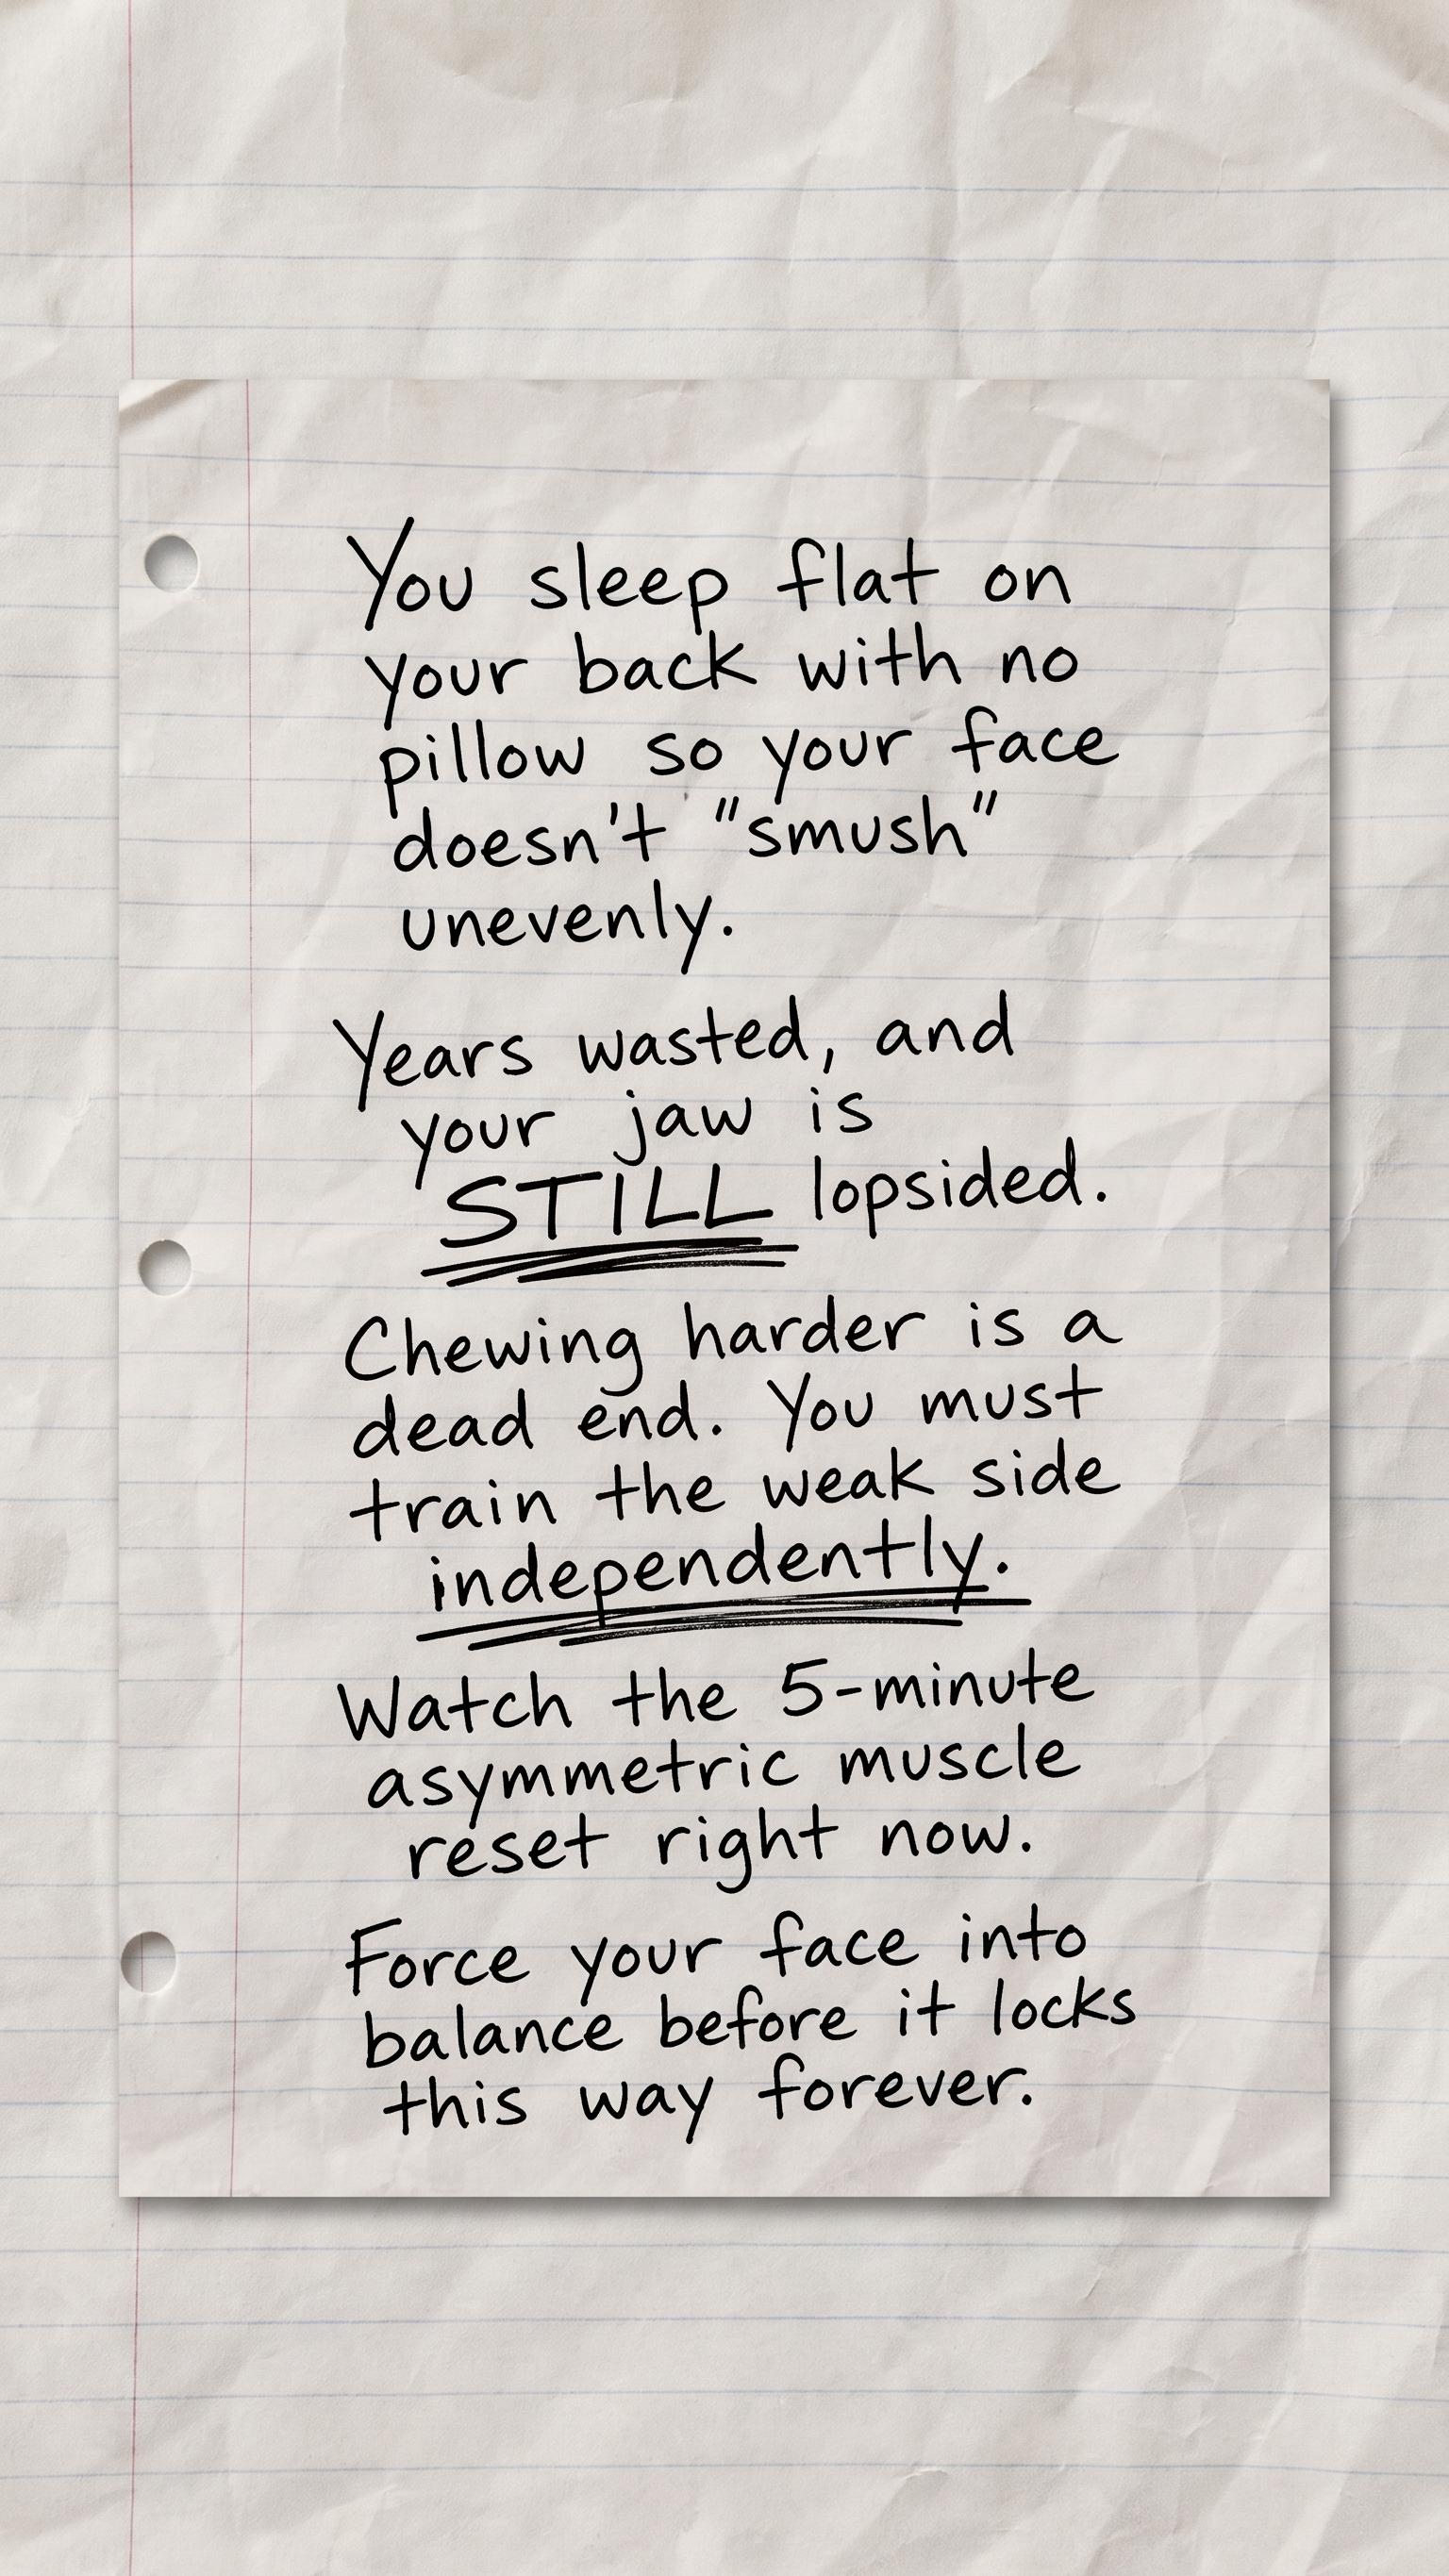 You sleep flat on
your back with no
pillow so your face
doesn't "smush"
unevenly.
Years wasted, and
your jaw is
STILL lopsided.
Chewing harder is a
dead end. You must
train the weak side
independently.
Watch the 5-minute
asymmetric muscle
reset right now.
Force your face into
balance before it locks
this way forever.